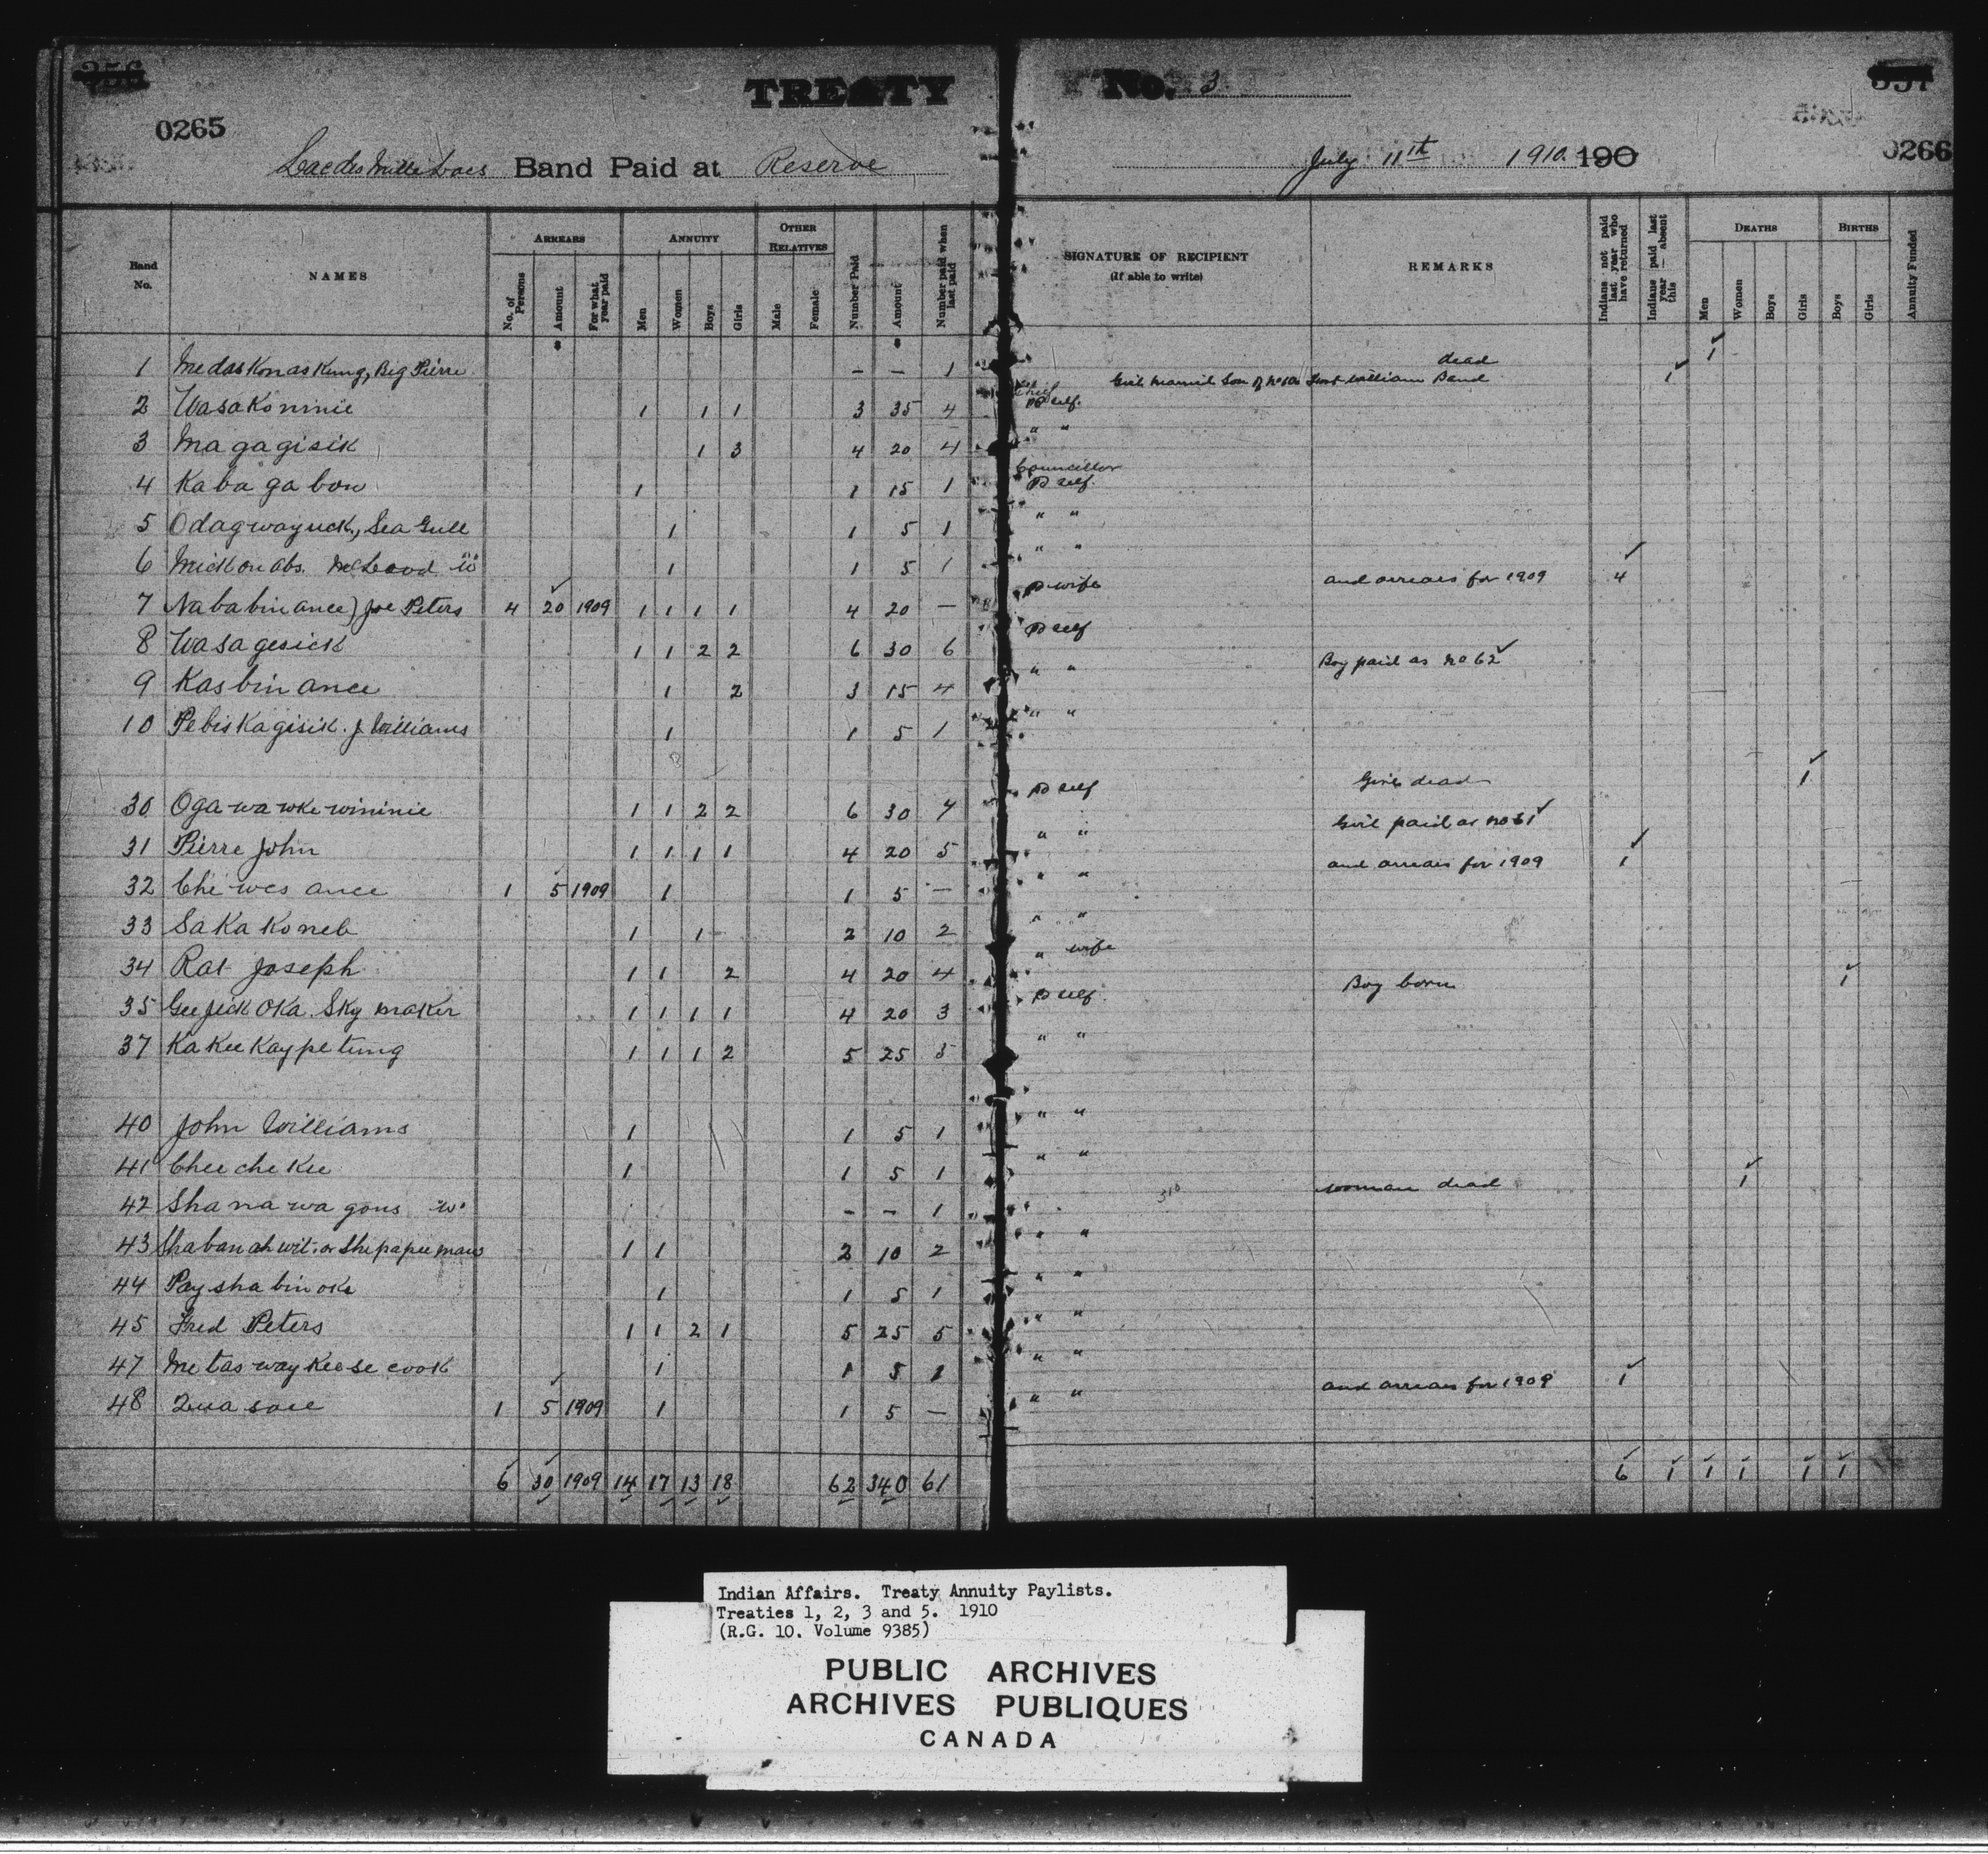 356
TREATY No. 3
357
0265
0266
Lac des Mille Lacs Band Paid at Reserve July 11th 1910 190
Band No. NAMES ARREARS No. of Persons Amount For what year paid ANNUITY Men Women Boys Girls OTHER RELATIVES Male Female Number Paid Amount Number paid when last paid SIGNATURE OF RECIPIENT (if able to write) REMARKS Indians not paid last year who have returned Indians paid last year — absent this DEATHS Men Women Boys Girls BIRTHS Boys Girls Annuity Funded
$ $
1 Medaskonaskung, Big Pierre — — 1 dead 1
2 Wasakoninie 1 1 1 3 35 4 Chief Pd self. Girl married Son of No 10a Fort William Band 1
3 Magagisik 1 3 4 20 4 " "
4 Kabagabow 1 1 15 1 Councillor Pd self.
5 Odagwayuck, Sea Gull 1 1 5 1 " "
6 Mickonabs. McLeod W 1 1 5 1 " "
7 Nababinance) Joe Peters 4 20 1909 1 1 1 1 4 20 — Pd wife and arrears for 1909 4
8 Wasagesick 1 1 2 2 6 30 6 Pd self
9 Kasbinance 1 2 3 15 4 " " Boy paid as No 62
10 Pebiskagisik. J. Williams 1 1 5 1 " "
30 Ogawawkewininie 1 1 2 2 6 30 7 Pd self Girl dead 1
31 Pierre John 1 1 1 1 4 20 5 " " Girl paid as No 61
32 Chiwesance 1 5 1909 1 1 5 — " " and arrears for 1909 1
33 Sakakoneb 1 1 2 10 2 " "
34 Rat Joseph 1 1 2 4 20 4 " wife
35 Geejickoka. Sky maker 1 1 1 1 4 20 3 Pd self. Boy born 1
37 Kakeekaypetung 1 1 1 2 5 25 5 " "
40 John Williams 1 1 5 1 " "
41 Cheecheekee 1 1 5 1 " "
42 Shanawagons W. — — 1 310 woman dead 1
43 Shabanahwit. or Shepapeemaw 1 1 2 10 2 " "
44 Payshabinoke 1 1 5 1 " "
45 Fred Peters 1 1 2 1 5 25 5 " "
47 Metaswaykeesecook 1 1 5 1 " "
48 Quasace 1 5 1909 1 1 5 — " " and arrears for 1909 1
6 30 1909 14 17 13 18 62 340 61 6 1 1 1 1 1
Indian Affairs. Treaty Annuity Paylists.
Treaties 1, 2, 3 and 5. 1910
(R.G. 10. Volume 9385)
PUBLIC ARCHIVES
ARCHIVES PUBLIQUES
CANADA